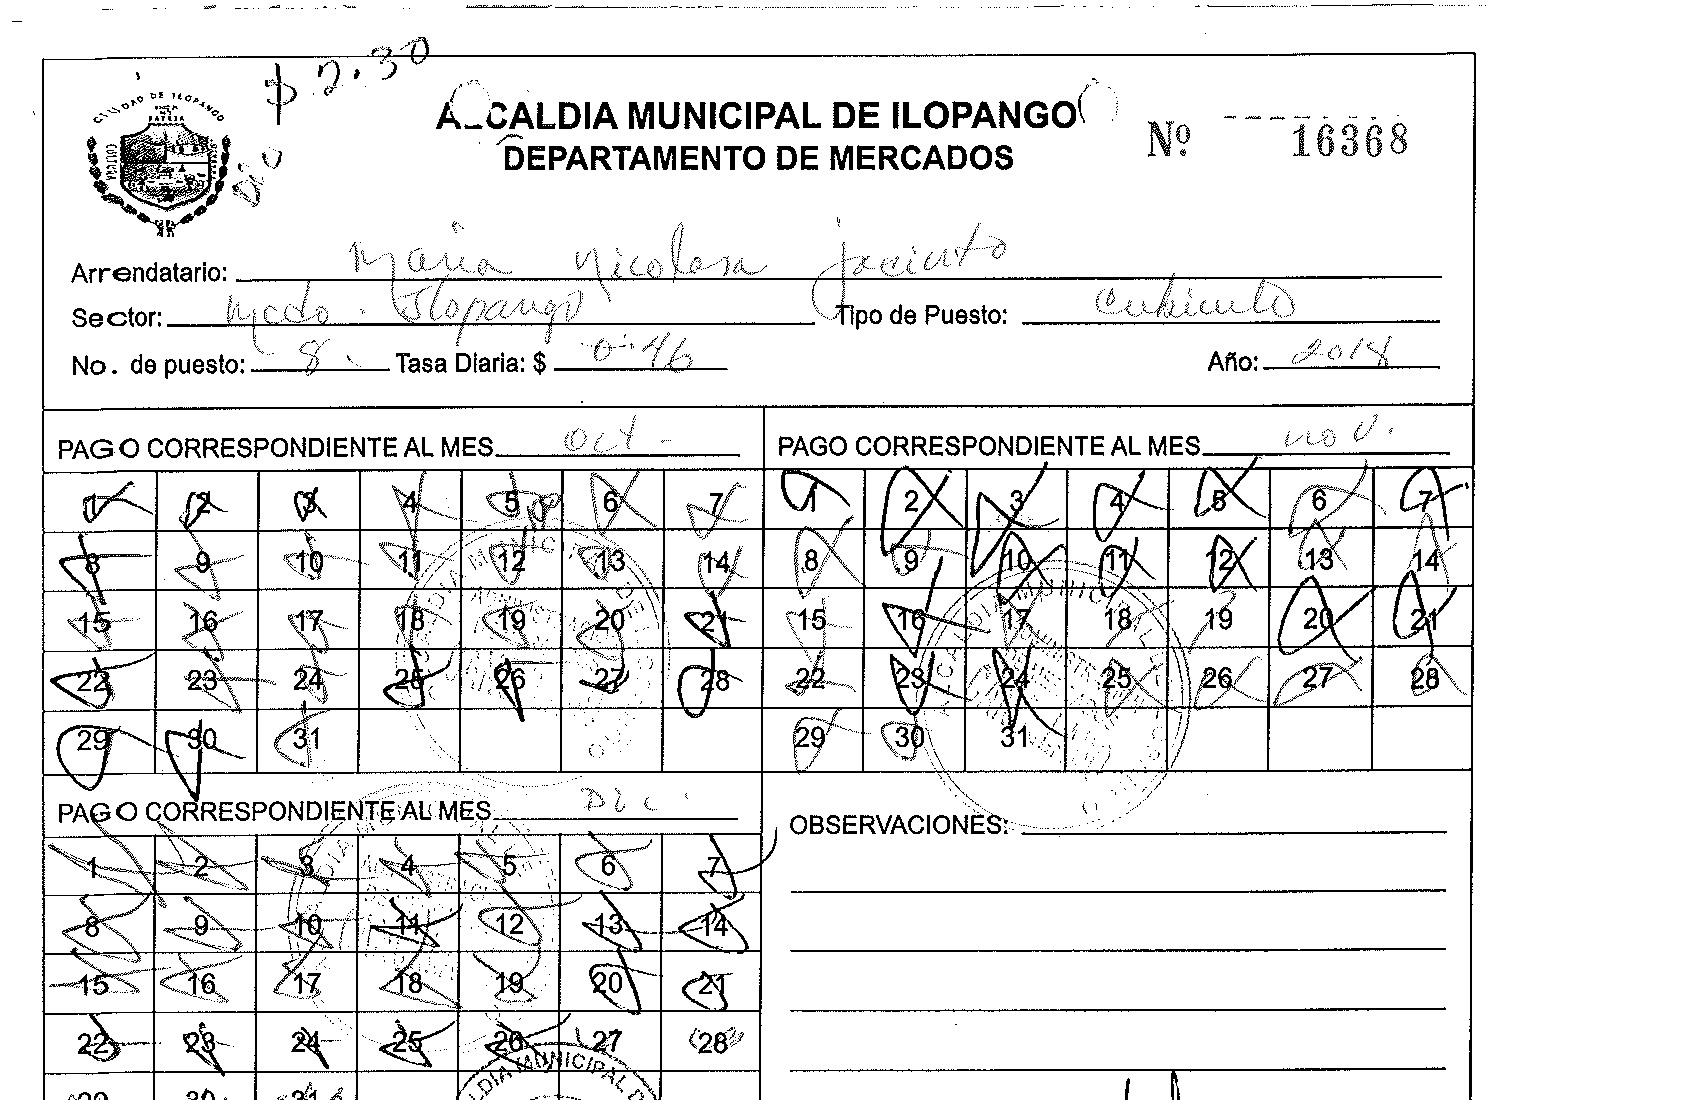 $ 2.30
CIUDAD DE ILOPANGO
PATRIA
ALCALDIA MUNICIPAL DE ILOPANGO
DEPARTAMENTO DE MERCADOS
Nº 16368
Arrendatario: Maria Nicolasa Jacinto
Sector: Mcdo. Ilopango Tipo de Puesto: Cubiculo
No. de puesto: 8. Tasa Diaria: $ 0.46 Año: 2018
PAGO CORRESPONDIENTE AL MES Oct -
1 2 3 4 5 6 7
8 9 10 11 12 13 14
15 16 17 18 19 20 21
22 23 24 25 26 27 28
29 30 31
PAGO CORRESPONDIENTE AL MES nov.
1 2 3 4 5 6 7
8 9 10 11 12 13 14
15 16 17 18 19 20 21
22 23 24 25 26 27 28
29 30 31
PAGO CORRESPONDIENTE AL MES Dic.
1 2 3 4 5 6 7
8 9 10 11 12 13 14
15 16 17 18 19 20 21
22 23 24 25 26 27 28
29 30 31
OBSERVACIONES:
ALCALDIA MUNICIPAL D